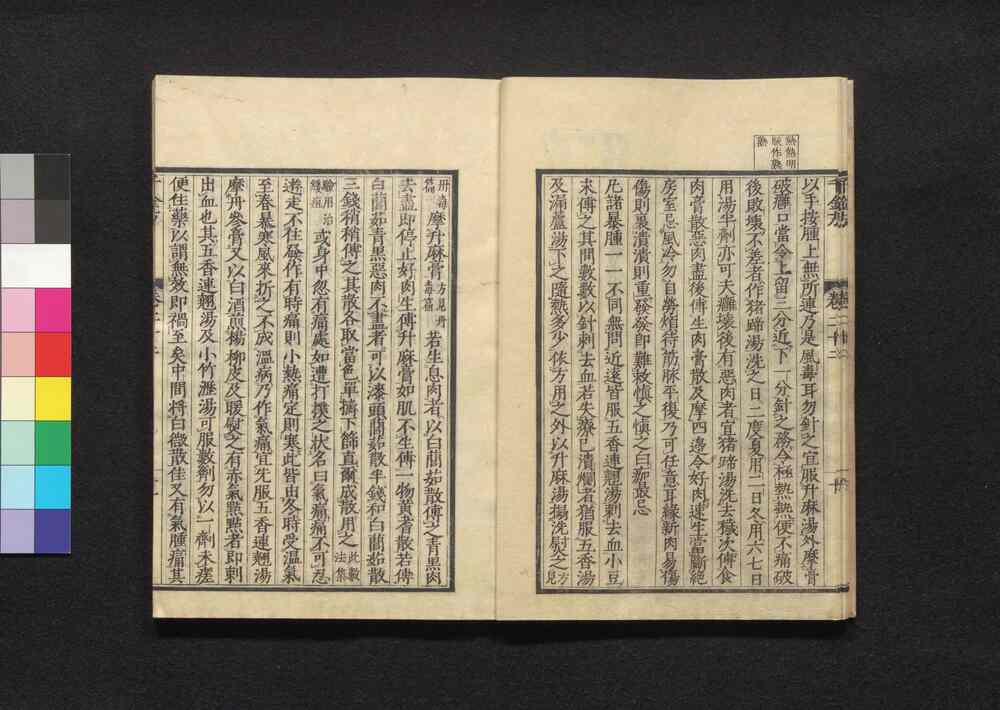 熱熱明
版作熟
熱
以手按腫上無所連乃是風毒耳勿針之宜服升麻湯外摩膏
破癰口當令上留三分近下一分針之務令極熱熱便不痛破
後敗壞不差者作猪蹄湯洗之日二度夏用二日冬用六七日
用湯半劑亦可夫癰壞後有惡肉者宜猪蹄湯洗去穢次傅食
肉膏散惡肉盡後傅生肉膏散及摩四邊令好肉速生當斷絕
房室忌風冷勿自勞煩待筋脉平復乃可任意耳緣新肉易傷
傷則裏潰潰則重發發即難救慎之慎之白痂最忌
凡諸暴腫一一不同無問近遠皆服五香連翹湯刺去血小豆
末傅之其間數數以針刺去血若失療已潰爛者猶服五香湯
及漏蘆湯下之隨熱多少依方用之外以升麻湯搨洗熨之方見
丹毒
篇
摩升麻膏方見丹
毒篇
若生息肉者以白䕡茹散傅之青黑肉
去盡即停止好肉生傅升麻膏如肌不生傅一物黄耆散若傅
白䕡茹青黑惡肉不盡者可以漆頭䕡茹散半錢和白䕡茹散
三錢稍稍傅之其散各取當色單擣下篩直爾成散用之此數
法集
驗用治
緩疽
或身中忽有痛處如遭打撲之狀名曰氣痛痛不可忍
遊走不住發作有時痛則小熱痛定則寒此皆由冬時受溫氣
至春暴寒風來折之不成溫病乃作氣痛宜先服五香連翹湯
摩丹參膏又以白酒煎楊柳皮及暖熨之有赤氣點點者即刺
出血也其五香連翹湯及小竹瀝湯可服數劑勿以一劑未瘥
便住藥以謂無效即禍至矣中間將白薇散佳又有氣腫痛其